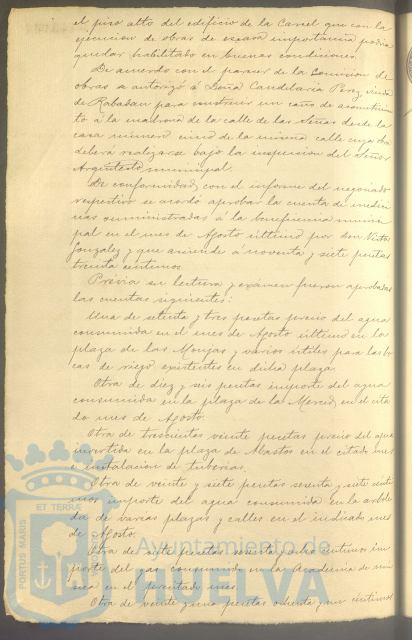 el piso alto del edificio de la Carcel que con la
ejecucion de obras de escasa importancia podria
quedar habilitado en buenas condiciones.
De acuerdo con el parecer de la Comision de
obras se autorizó á Doña Candelaria Perez, viuda
de Rabadan para construir un caño de acometimien
to á la madrona de la calle de las Señas desde la
casa número cinco de la misma calle cuya obra
deberá realizarse bajo la inspeccion del Señor
Arquitecto municipal.
De conformidad con el informe del negociado
respectivo se acordó aprobar la cuenta de medici
nas suministradas á la beneficencia munici
pal en el mes de Agosto último por don Victor
Gonzalez y que asciende á noventa y siete pesetas
treinta centimos.
Prévia su lectura y exámen fueron aprobadas
las cuentas siguientes:
Una de setenta y tres pesetas precio del agua
consumida en el mes de Agosto último en la
plaza de las Monjas y varios útiles para las bo
cas de riego existentes en dicha plaza.
Otra de diez y seis pesetas importe del agua
consumida en la plaza de la Merced en el cita
do mes de Agosto.
Otra de trescientas veinte pesetas precio del agua
invertida en la plaza de Abastos en el citado mes
é instalacion de tuberias.
Otra de veinte y siete pesetas sesenta y siete centi
mos importe del agua consumida en la arbole
da de varias plazas y calles en el indicado mes
de Agosto.
Otra de siete pesetas sesenta y ocho centimos im
porte del gas consumido en la Academia de mú
sica en el precitado mes.
Otra de veinte y una pesetas ochenta y un centimos
ET TERRA
PORTUS MARIS
Ayuntamiento de
HUELVA